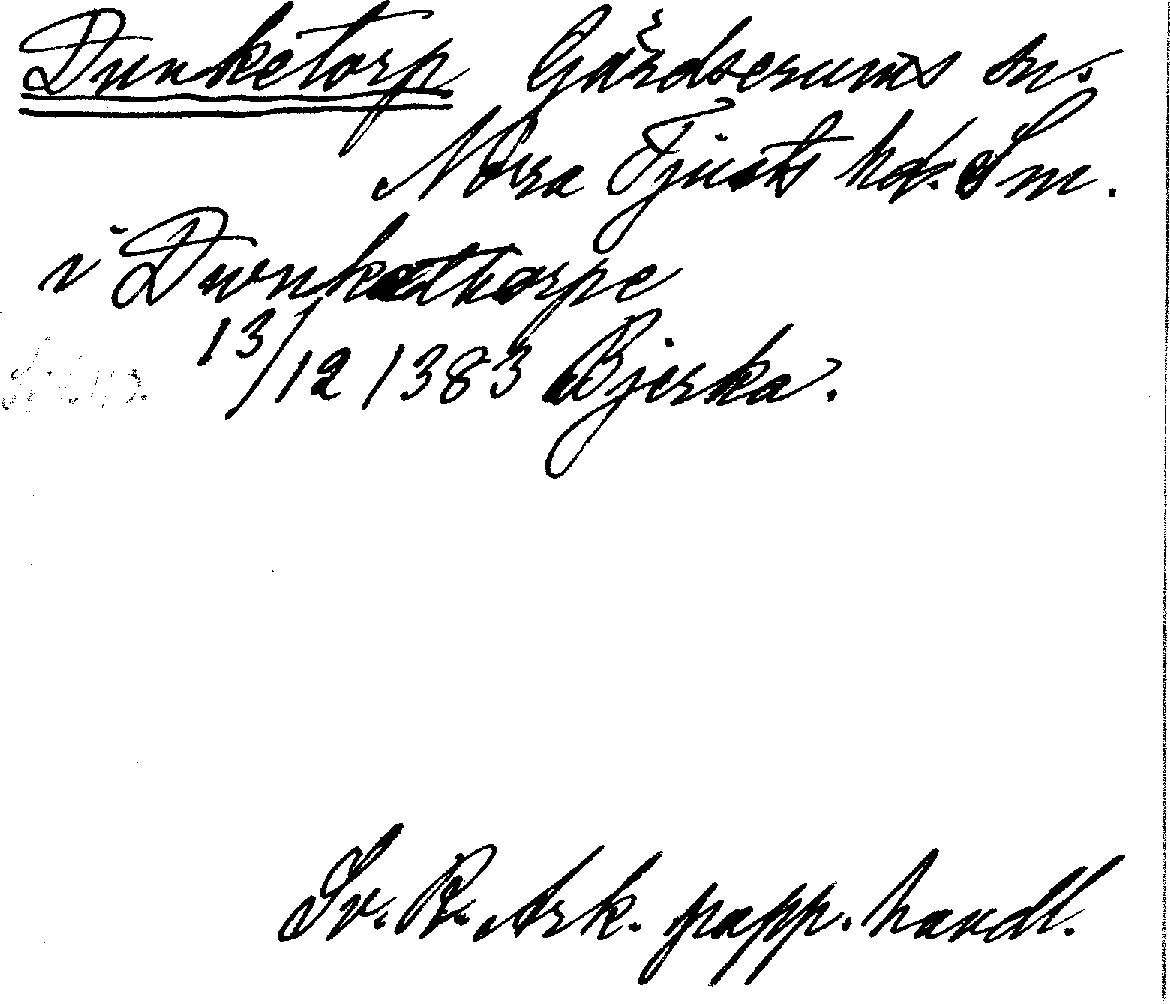 Dunketorp Gärdserums sn.
Norra Tjusts hd. Sm.
i Dwnkathorpe
13/12 1383 Bjerka.
Sv. R. Ark. papp. handl.